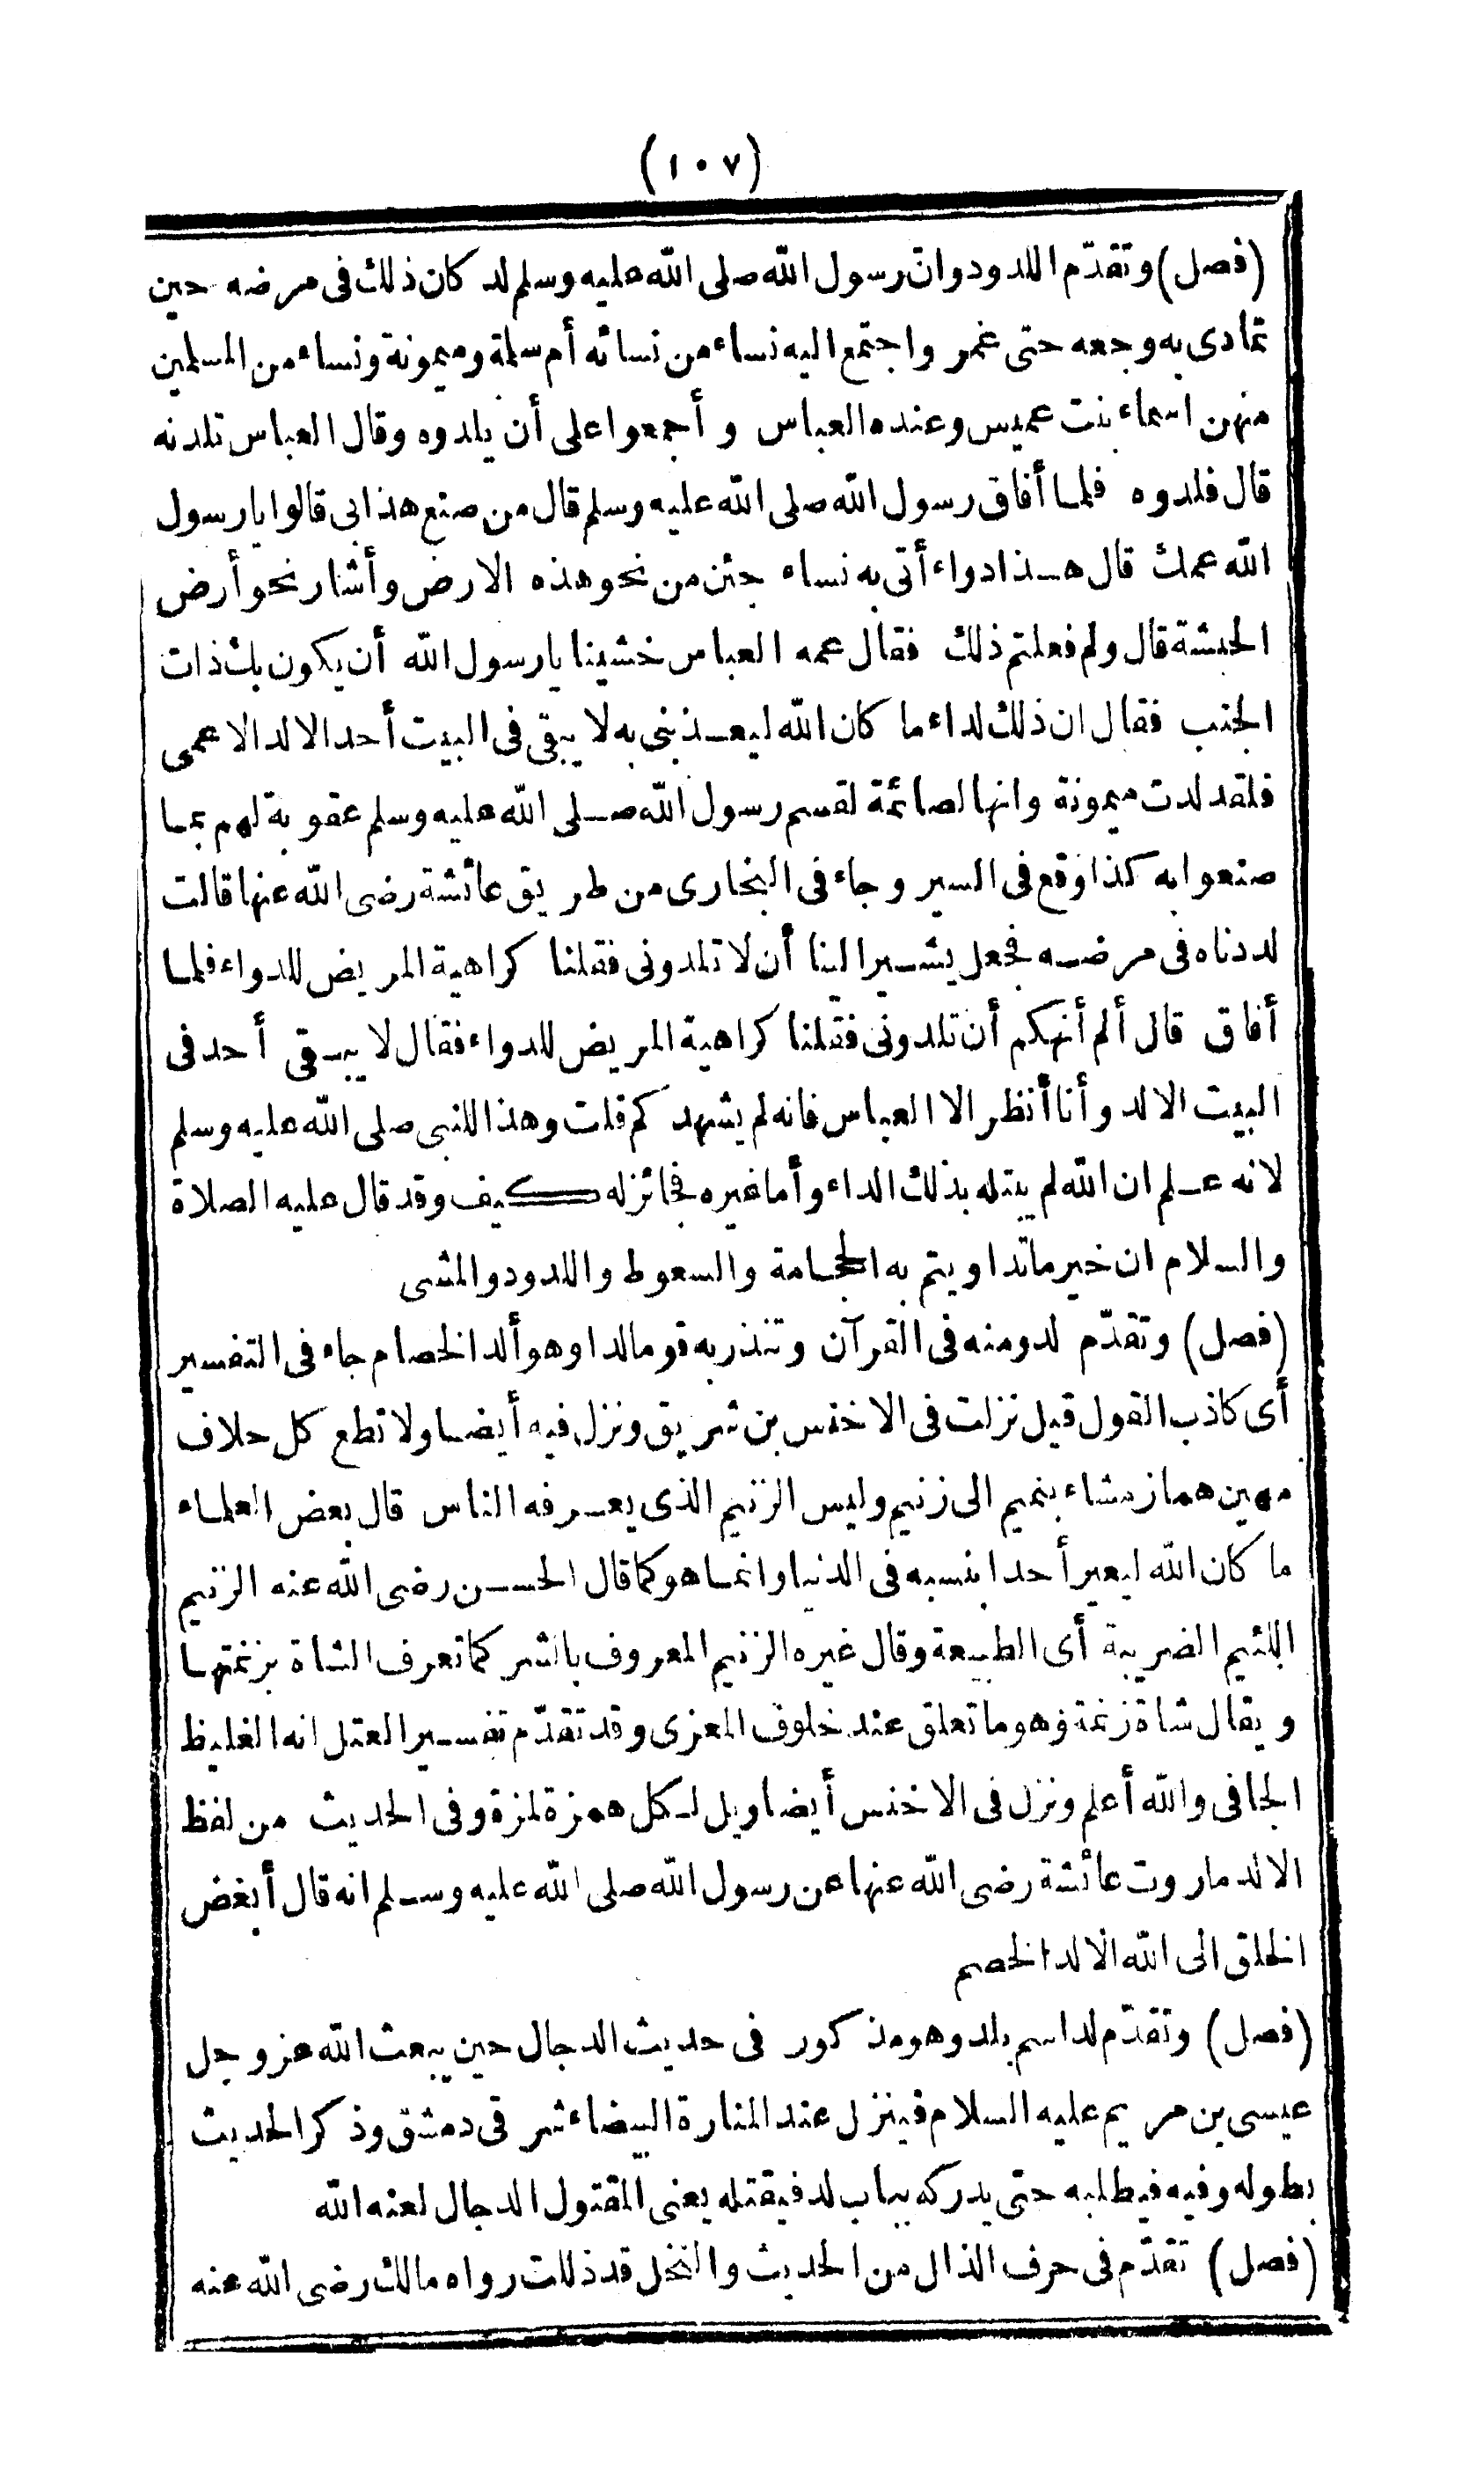 (١٠٧)
(فصل) وتقدّم اللدود وانّ رسول الله صلى الله عليه وسلم لد كان ذلك فى مرضه حين
تمادى به وجعه حتى غمر واجتمع اليه نساء من نسائه أم سلمة وميمونة ونساء من المسلمين
منهن اسماء بنت عميس وعنده العباس وأجمعوا على أن يلدوه وقال العباس تلدنه
قال فلدوه فلما أفاق رسول الله صلى الله عليه وسلم قال من صنع هذا بى قالوا يارسول
الله عمك قال هذا دواء أتى به نساء جئن من نحو هذه الارض وأشار نحو أرض
الحبشة قال ولم فعلتم ذلك فقال عمه العباس خشينا يارسول الله أن يكون بك ذات
الجنب فقال ان ذلك لداء ما كان الله ليعذبنى به لا يبقى فى البيت أحد الا لد الا عمى
فلقد لدت ميمونة وانها لصائمة لقسم رسول الله صلى الله عليه وسلم عقوبة لهم بما
صنعوا به كذا وقع فى السير وجاء فى البخارى من طريق عائشة رضى الله عنها قالت
لددناه فى مرضه فجعل يشير الينا أن لا تلدونى فقلنا كراهية المريض للدواء فلما
أفاق قال ألم أنهكم أن تلدونى فقلنا كراهية المريض للدواء فقال لا يبقى أحد فى
البيت الا لد وأنا أنظر الا العباس فانه لم يشهدكم قلت وهذا للنبى صلى الله عليه وسلم
لانه علم ان الله لم يبتله بذلك الداء وأما غيره فجائز له كيف وقد قال عليه الصلاة
والسلام ان خير ما تداويتم به الحجامة والسعوط واللدود والمشى
(فصل) وتقدّم لد ومنه فى القرآن وتنذر به قوما لدا وهو ألد الخصام جاء فى التفسير
أى كاذب القول قيل نزلت فى الاخنس بن شريق ونزل فيه أيضا ولا تطع كل حلاف
مهين هماز مشاء بنميم الى زنيم وليس الزنيم الذى يعرفه الناس قال بعض العلماء
ما كان الله ليعير أحدا بنسبه فى الدنيا وانما هو كما قال الحسن رضى الله عنه الزنيم
اللئيم الضريبة أى الطبيعة وقال غيره الزنيم المعروف بالشر كما تعرف الشاة بزنمتها
ويقال شاة زنمة وهو ما تعلق عند حلوق المعزى وقد تقدّم تفسير العتل انه الغليظ
الجافى والله أعلم ونزل فى الاخنس أيضا ويل لكل همزة لمزة وفى الحديث من لفظ
الالد ماروت عائشة رضى الله عنها عن رسول الله صلى الله عليه وسلم انه قال أبغض
الخلق الى الله الالد الخصم
(فصل) وتقدّم لد اسم بلد وهو مذكور فى حديث الدجال حين يبعث الله عز وجل
عيسى بن مريم عليه السلام فينزل عند المنارة البيضاء شرقى دمشق وذكر الحديث
بطوله وفيه فيطلبه حتى يدركه بباب لد فيقتله يعنى المقتول الدجال لعنه الله
(فصل) تقدّم فى حرف الذال من الحديث والنخل قد ذللت رواه مالك رضى الله عنه